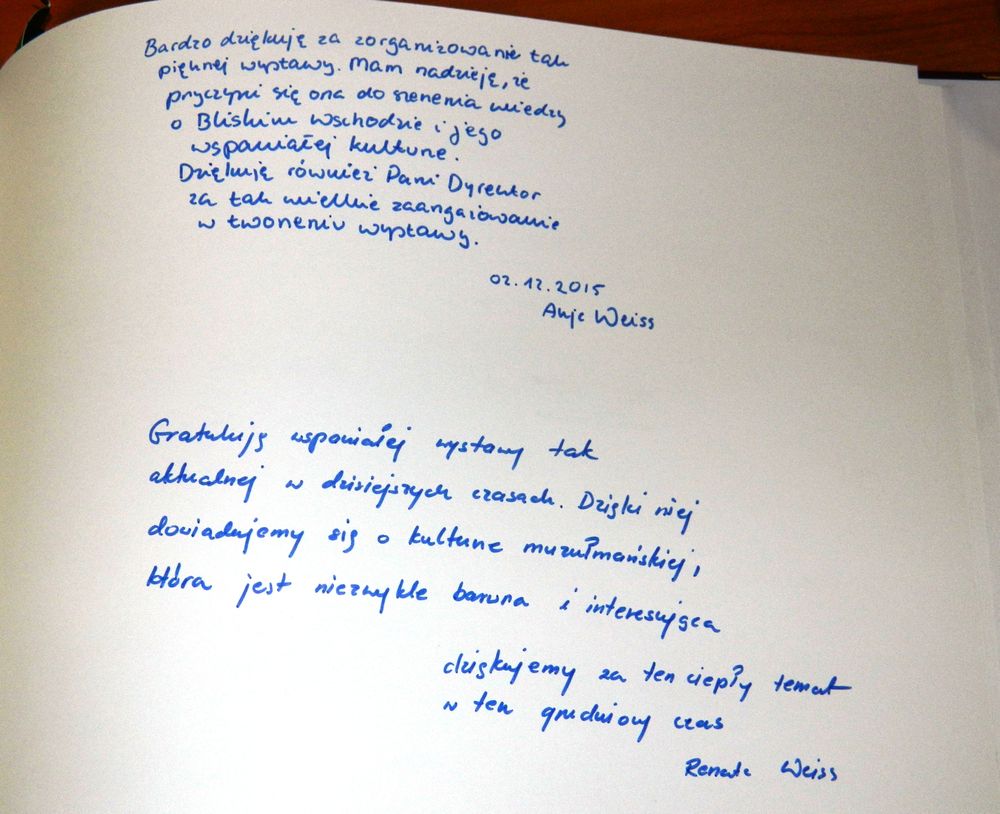 Bardzo dziękuję za zorganizowanie tak
pięknej wystawy. Mam nadzieję, że
pryczyni się ona do szerzenia wiedzy
o Bliskim Wschodzie i jego
wspaniałej kulturze.
Dziękuję również Pani Dyrektor
za tak wielkie zaangażowanie
w tworzeniu wystawy.
02.12.2015
Weiss
Gratuluję wspaniałej wystawy tak
aktualnej w dzisiejszych czasach. Dzięki niej
dowiadujemy się o kulturze muzułmańskiej,
która jest niezwykle barwna i interesująca
dziękujemy za ten ciepły temat
w ten grudniowy czas
Renata Weiss